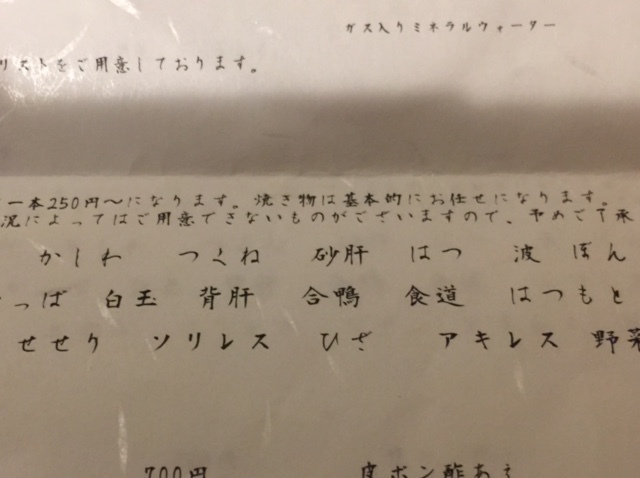 ガス入りミネラルウォーター
リストをご用意しております。
一本250円～になります。焼き物は基本的にお任せになります。
況によってはご用意できないものがございますので、予めご了承
かしわ つくね 砂肝 はつ 波 ぼん
っぱ 白玉 背肝 合鴨 食道 はつもと
せせり ソリレス ひざ アキレス 野菜
700円 皮ポン酢あえ